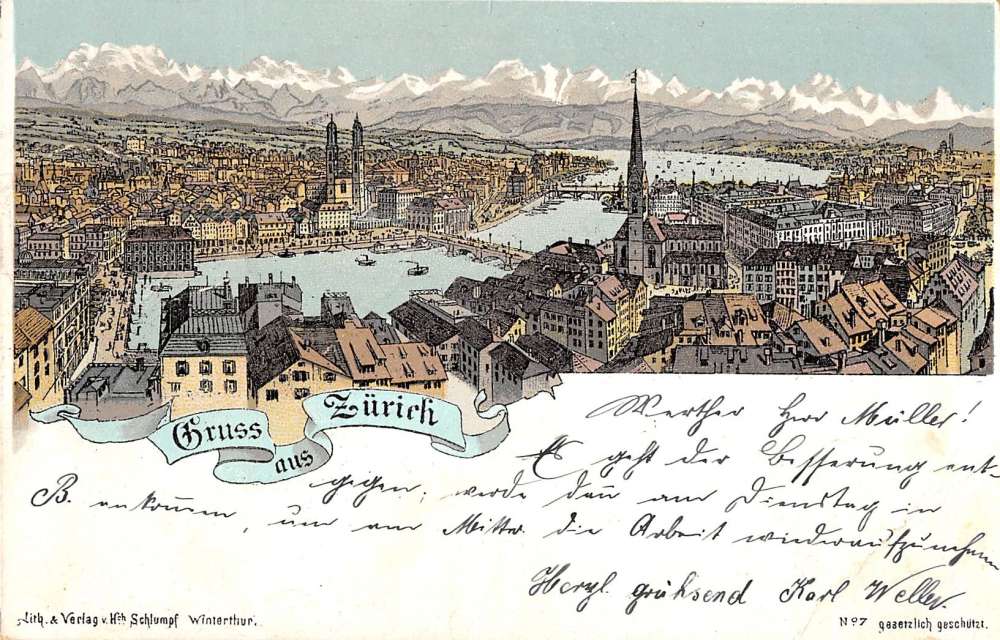 Gruss
aus
Zürich
Werther Herr Müller!
Es geht der Besserung ent-
gegen, werde dan am Dienstag in
B. ankomm̄en, um am Mittw. die Arbeit wiederaufzunehmen
Herzl. grüßsend Karl Weller.
Lith. & Verlag v. Hch Schlumpf Winterthur.
No 7 gesetzlich geschützt.